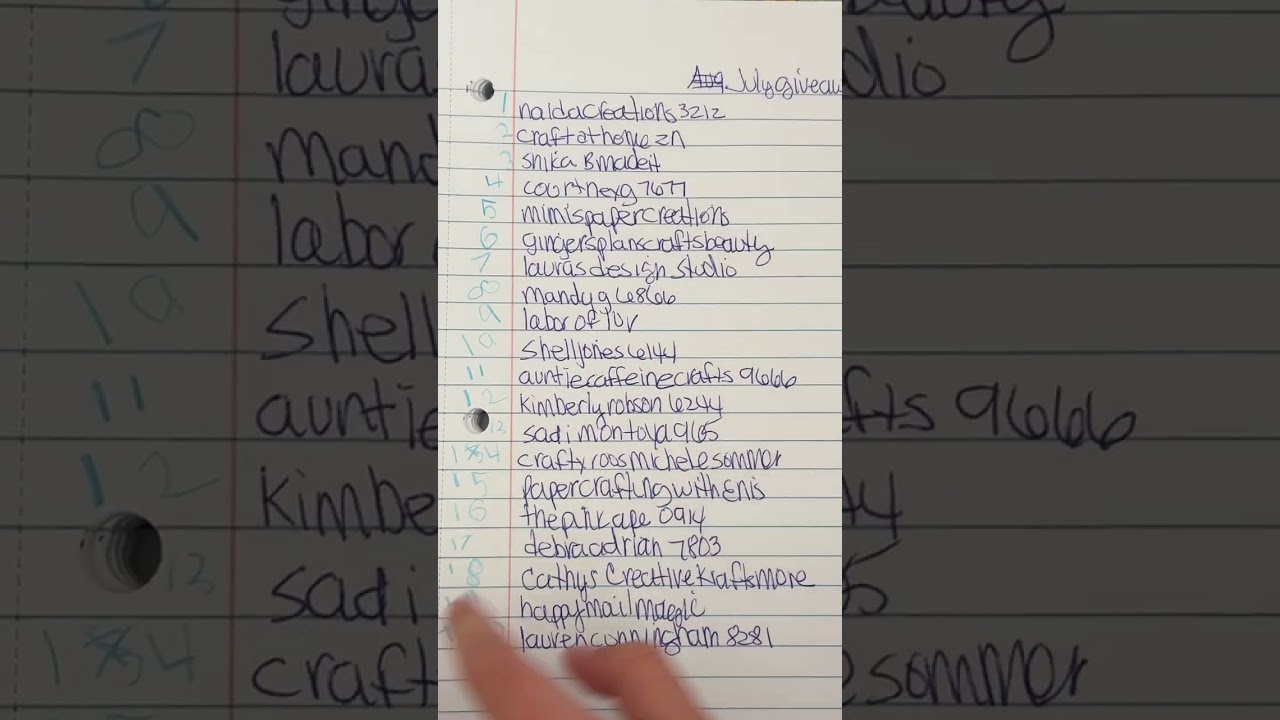 Aug. July giveaw
1 naidacreations3212
2 craftathomezn
3 shikaBmadeit
4 courtneyg7677
5 mimispapercreations
6 gingersplanscraftsbeauty
7 laurasdesignstudio
8 mandyg6866
9 laborofluv
10 shelljones6144
11 auntiecaffeinecrafts9666
12 kimberlyrobson6244
13 sadimontoya965
14 craftyroosmichelesommer
15 papercraftingwithEnis
16 thepinkape0914
17 debraadrian7803
18 cathysCreativekraftsmore
happymailmagic
laurencunningham8281